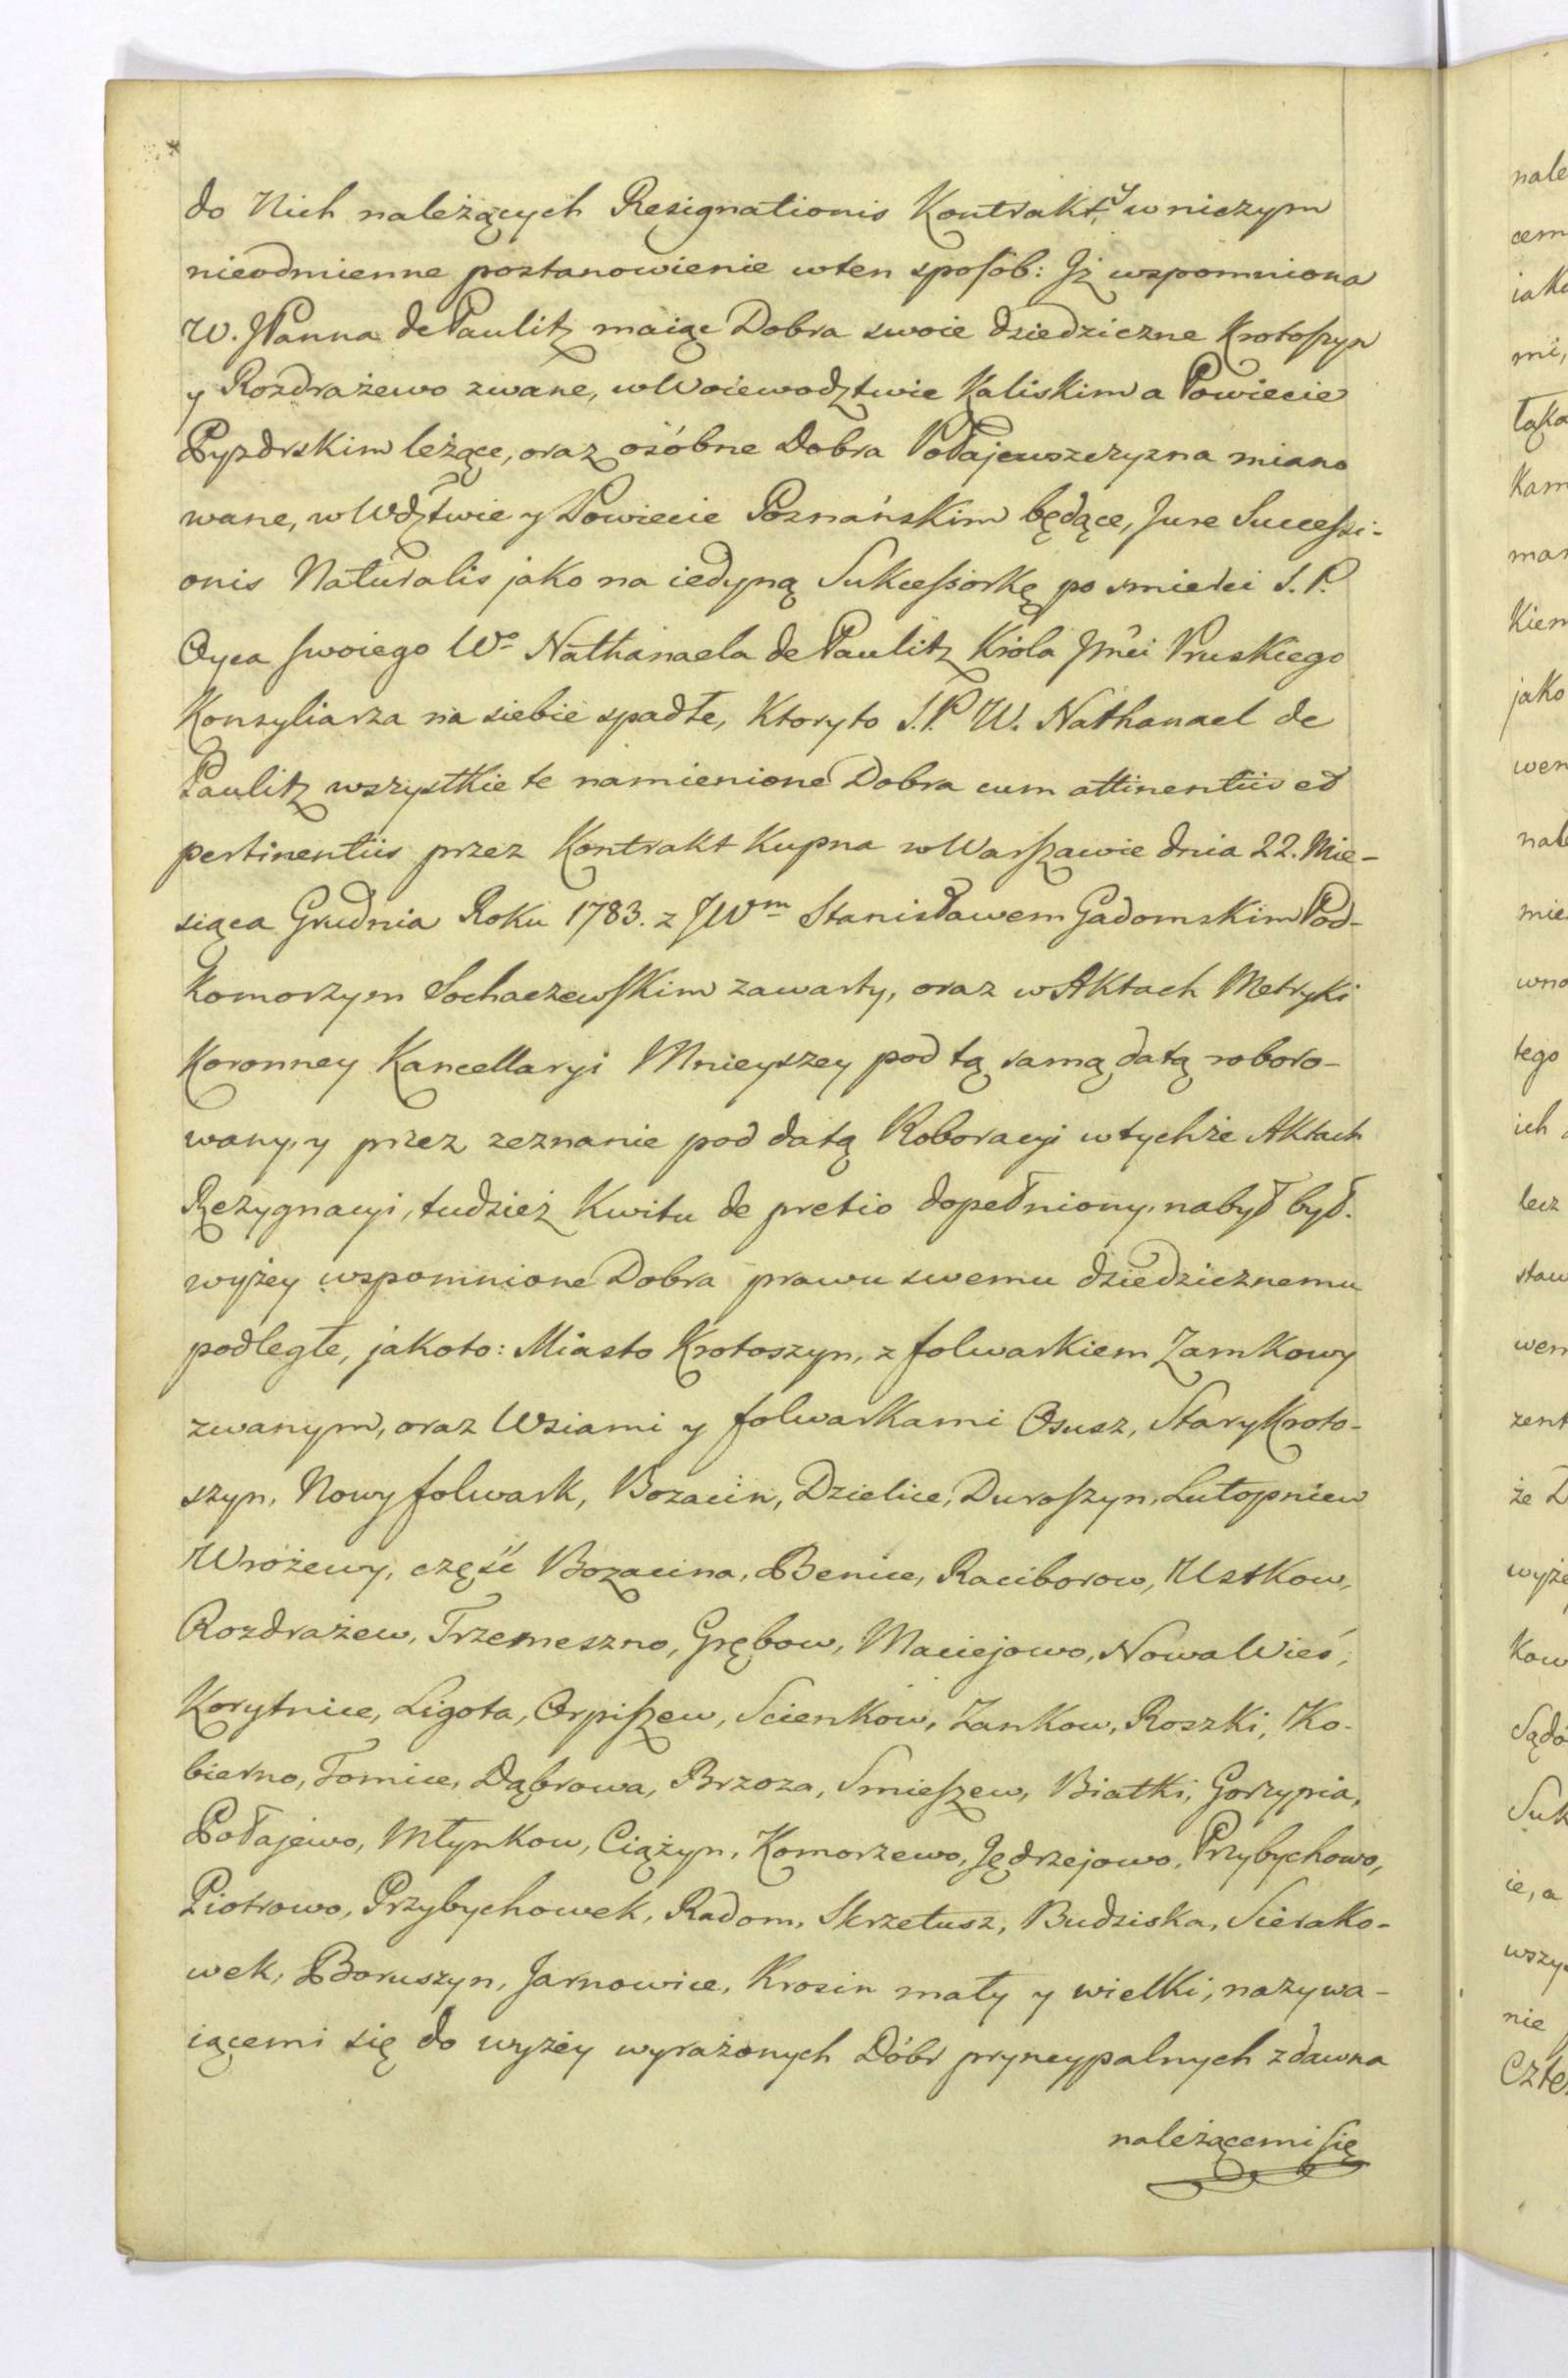 do Nich należących Resignationis Kontrakt, y w niczym
nieodmienne postanowienie wten sposób: Jż wspomniona
W. JPanna de Paulitz maiąc Dobra swoie dziedziczne Krotoszyn
y Rozdrażewo zwane, w Woiewodztwie Kaliskim a Powiecie
Pyzdrskim leżące, oraz osóbne Dobra Połajewszczyzna miano
wane, w Wdztwie y Powiecie Poznańskim będące, Jure Successi-
onis Naturalis jako na iedyną Sukcessorkę po smierci S. P.
Oyca swoiego Wo Nathanaela de Paulitz Króla Jmci Pruskiego
Konsyliarza na siebie spadłe, Ktoryto S. P. W. Nathanael de
Paulitz wszystkie te namienione Dobra cum attinentiis et
pertinentiis przez Kontrakt Kupna w Warszawie dnia 22. Mie-
siąca Grudnia Roku 1783. z JWm Stanisławem Gadomskim Pod-
komorzym Sochaczewskim zawarty, oraz w Aktach Metryki
Koronney Kancellaryi Mnieyszey pod tą samą datą roboro-
wany, y przez zeznanie pod datą Roboracyi w tychże Aktach
Rezygnacyi, tudzież Kwitu de pretio dopełniony, nabył był.
wyżey wspomnione Dobra prawu swemu dziedzicznemu
podległe, jakoto: Miasto Krotoszyn, z folwarkiem Zamkowy
zwanym, oraz Wsiami y folwarkami Osusz, Stary Kroto-
szyn, Nowy folwark, Bozacin, Dzielice, Duroszyn, Lutopniew
Wróżewy, część Bozacina, Benice, Raciborow, Ustkow,
Rozdrażew, Trzemeszno, Grębow, Maciejowo, Nowa Wieś,
Korytnice, Ligota, Orpiszew, Scienkow, Zankow, Roszki, Ko-
bierno, Tomice, Dąbrowa, Brzoza, Smieszew, Białki, Gorzypia,
Połajewo, Młynkow, Ciążyn, Komorzewo, Jędrzejowo, Przybychowo,
Piotrowo, Przybychowek, Radom, Skrzetusz, Budziska, Sierako-
wek, Boruszyn, Jarnowice, Krosin mały y wielki, nazywa-
iącemi się do wyżey wyrażonych Dóbr pryncypalnych zdawna
należącemi się